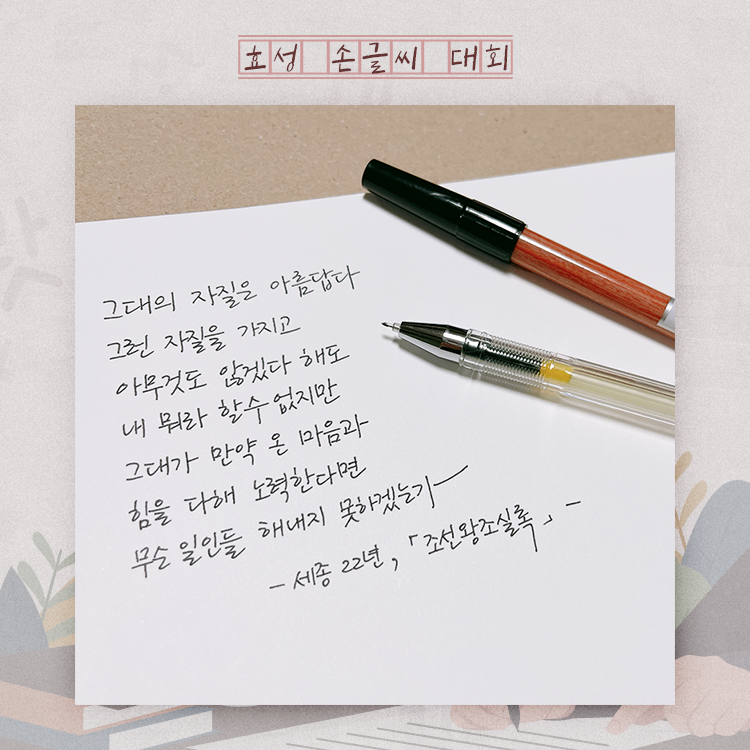 효성 손글씨 대회
그대의 자질은 아름답다
그런 자질을 가지고
아무것도 않겠다 해도
내 뭐라 할수 없지만
그대가 만약 온 마음과
힘을 다해 노력한다면
무슨 일인들 해내지 못하겠는가
- 세종 22년, 「조선왕조실록」 -